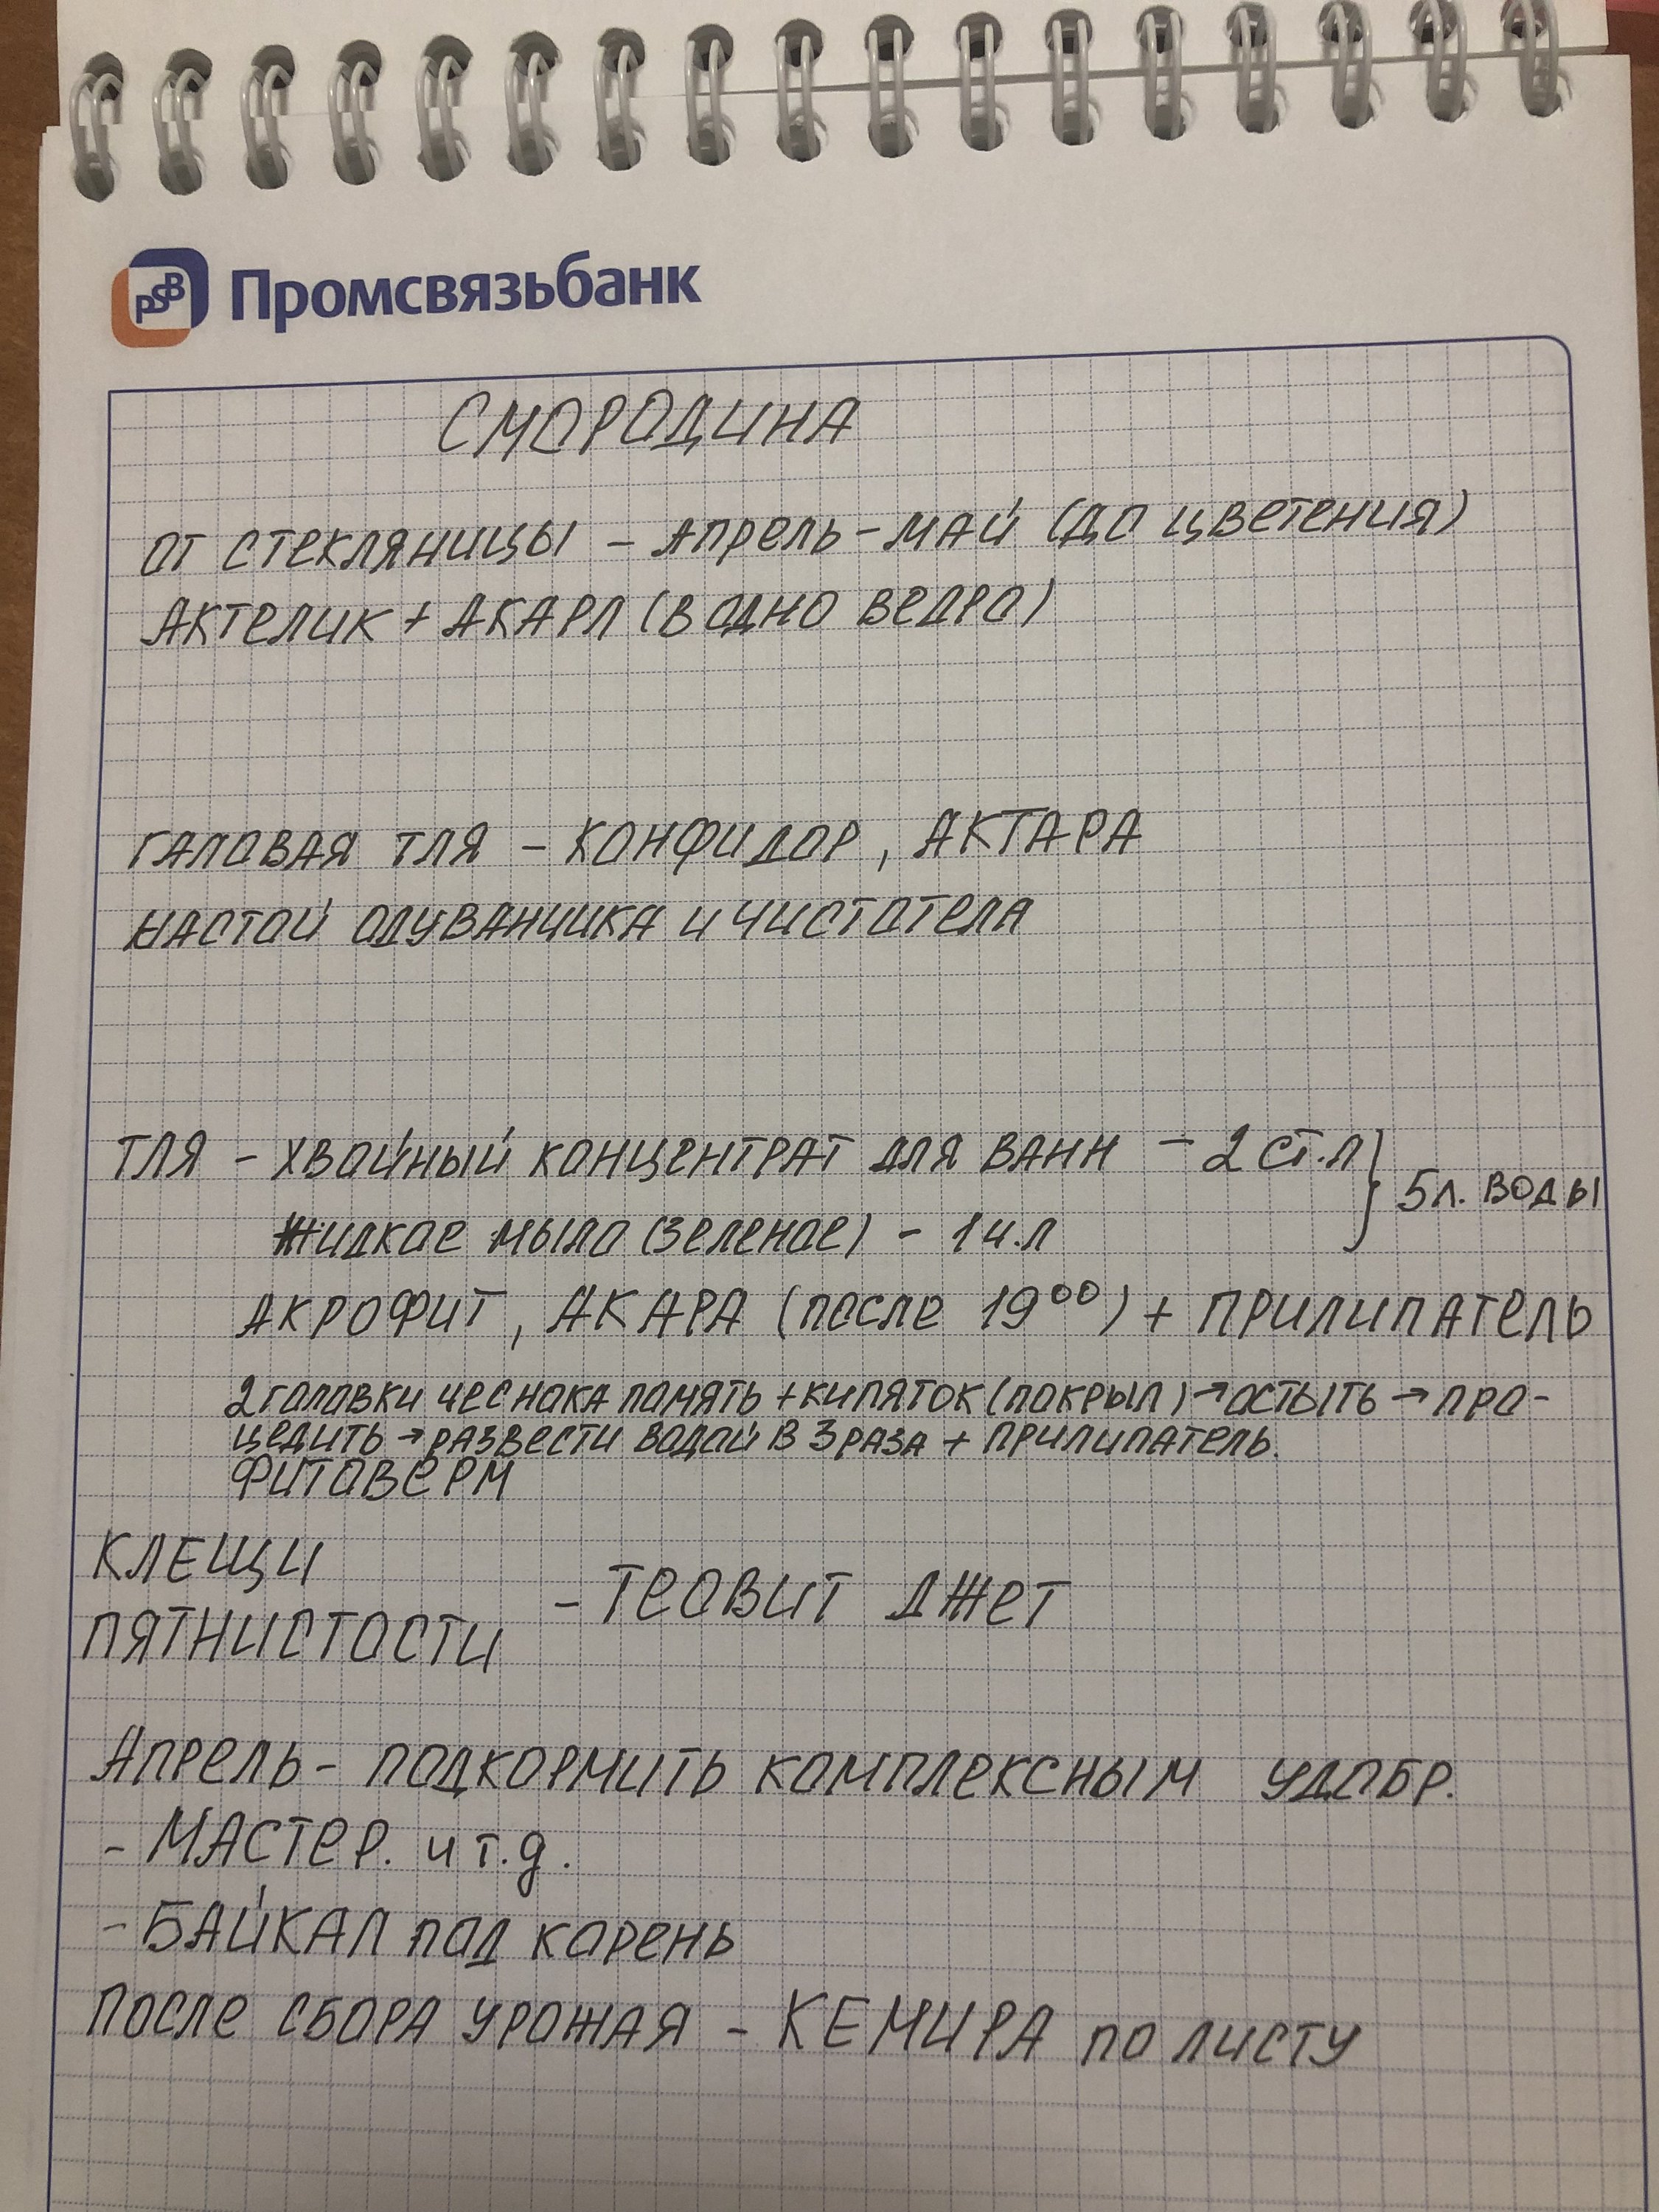 PSB Промсвязьбанк
СМОРОДИНА
ОТ СТЕКЛЯНИЦЫ – АПРЕЛЬ – МАЙ (ДО ЦВЕТЕНИЯ)
АКТЕЛИК + АКАРЛ (В ОДНО ВЕДРО)
ГАЛОВАЯ ТЛЯ – КОНФИДОР, АКТАРА
НАСТОЙ ОДУВАНЧИКА И ЧИСТОТЕЛА
ТЛЯ – ХВОЙНЫЙ КОНЦЕНТРАТ ДЛЯ ВАНН – 2 СТ.Л } 5 Л. ВОДЫ
ЖИДКОЕ МЫЛО (ЗЕЛЕНОЕ) – 1 Ч.Л
АКРОФИТ, АКАРА (ПОСЛЕ 19⁰⁰) + ПРИЛИПАТЕЛЬ
2 ГОЛОВКИ ЧЕСНОКА ПОМЯТЬ + КИПЯТОК (ПОКРЫЛ) → ОСТЫТЬ → ПРО-
ЦЕДИТЬ → РАЗВЕСТИ ВОДОЙ В 3 РАЗА + ПРИЛИПАТЕЛЬ.
ФИТОВЕРМ
КЛЕЩИ
– ТЕОВИТ ДЖЕТ
ПЯТНИСТОСТИ
АПРЕЛЬ – ПОДКОРМИТЬ КОМПЛЕКСНЫМ УДОБР.
– МАСТЕР. И Т.Д.
– БАЙКАЛ ПОД КОРЕНЬ
ПОСЛЕ СБОРА УРОЖАЯ – КЕМИРА ПО ЛИСТУ